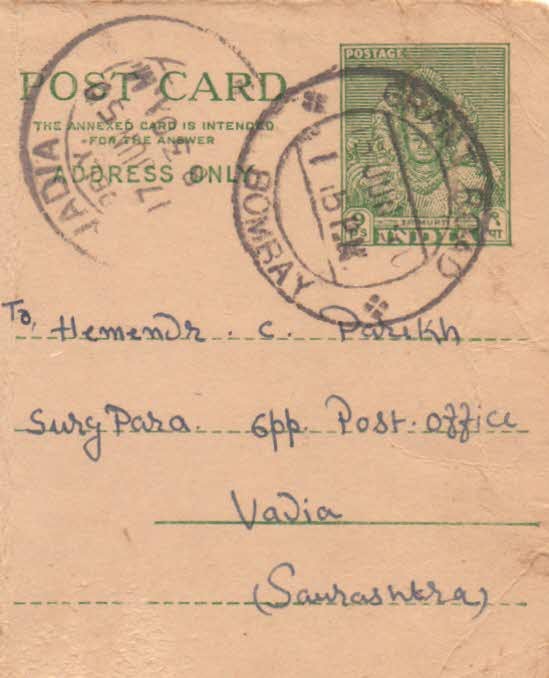 POST CARD
THE ANNEXED CARD IS INTENDED
FOR THE ANSWER
ADDRESS ONLY
POSTAGE
TRIMURTI
INDIA
BOMBAY
ROAD
17 JUN
To, Hemendr. C. Parikh
Surg Para. Opp. Post. Office
Vadia
(Saurashtra)